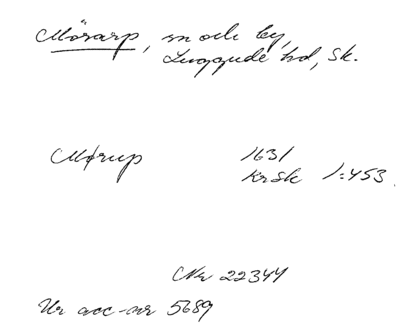 Mörarp, sn och by,
Luggude hd, Sk.
Mørup 1631
KrSk 1:453.
Nr 22344
Ur acc-nr 5689